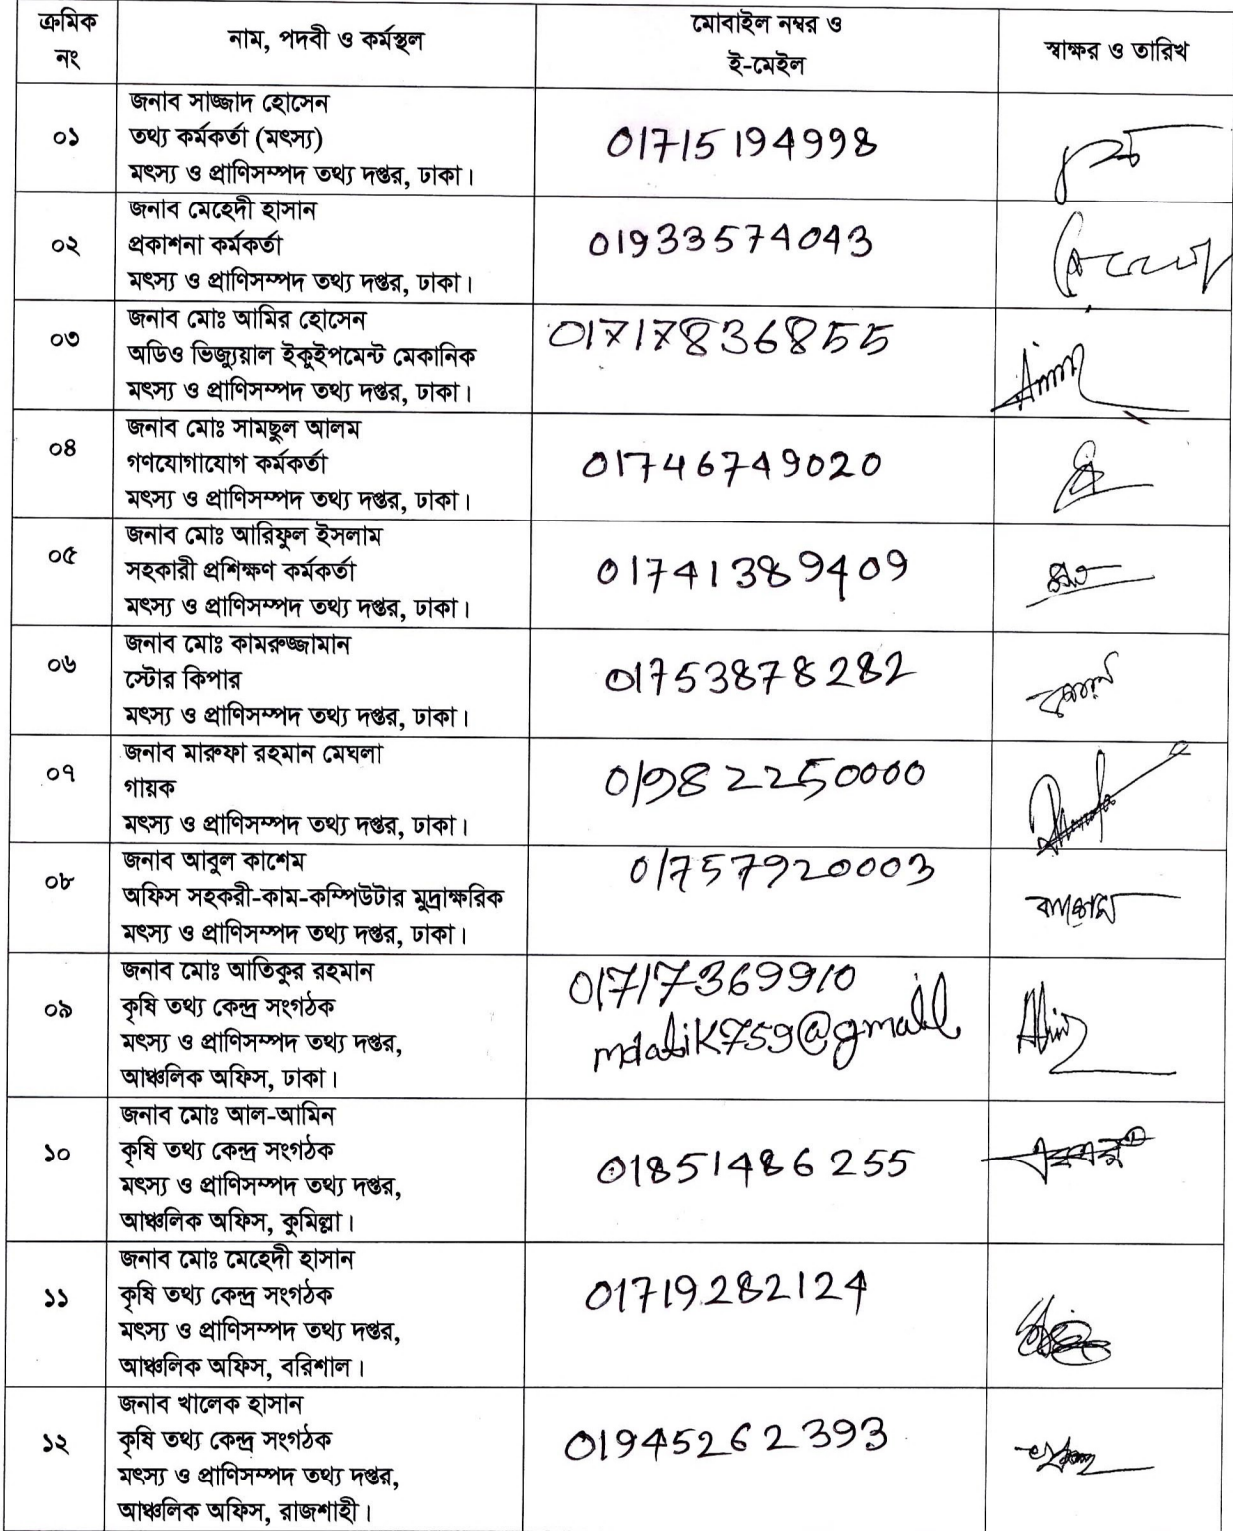 ক্রমিক
নং
নাম, পদবী ও কর্মস্থল
মোবাইল নম্বর ও
ই-মেইল
স্বাক্ষর ও তারিখ
০১
জনাব সাজ্জাদ হোসেন
তথ্য কর্মকর্তা (মৎস্য)
মৎস্য ও প্রাণিসম্পদ তথ্য দপ্তর, ঢাকা।
01715194998
০২
জনাব মেহেদী হাসান
প্রকাশনা কর্মকর্তা
মৎস্য ও প্রাণিসম্পদ তথ্য দপ্তর, ঢাকা।
01933574043
০৩
জনাব মোঃ আমির হোসেন
অডিও ভিজ্যুয়াল ইকুইপমেন্ট মেকানিক
মৎস্য ও প্রাণিসম্পদ তথ্য দপ্তর, ঢাকা।
01717836855
০৪
জনাব মোঃ সামছুল আলম
গণযোগাযোগ কর্মকর্তা
মৎস্য ও প্রাণিসম্পদ তথ্য দপ্তর, ঢাকা।
01746749020
০৫
জনাব মোঃ আরিফুল ইসলাম
সহকারী প্রশিক্ষণ কর্মকর্তা
মৎস্য ও প্রাণিসম্পদ তথ্য দপ্তর, ঢাকা।
01741389409
০৬
জনাব মোঃ কামরুজ্জামান
স্টোর কিপার
মৎস্য ও প্রাণিসম্পদ তথ্য দপ্তর, ঢাকা।
01753878282
০৭
জনাব মারুফা রহমান মেঘলা
গায়ক
মৎস্য ও প্রাণিসম্পদ তথ্য দপ্তর, ঢাকা।
01982250000
০৮
জনাব আবুল কাশেম
অফিস সহকরী-কাম-কম্পিউটার মুদ্রাক্ষরিক
মৎস্য ও প্রাণিসম্পদ তথ্য দপ্তর, ঢাকা।
01757920003
০৯
জনাব মোঃ আতিকুর রহমান
কৃষি তথ্য কেন্দ্র সংগঠক
মৎস্য ও প্রাণিসম্পদ তথ্য দপ্তর,
আঞ্চলিক অফিস, ঢাকা।
01717369910
mdatik759@gmail
১০
জনাব মোঃ আল-আমিন
কৃষি তথ্য কেন্দ্র সংগঠক
মৎস্য ও প্রাণিসম্পদ তথ্য দপ্তর,
আঞ্চলিক অফিস, কুমিল্লা।
01851486255
১১
জনাব মোঃ মেহেদী হাসান
কৃষি তথ্য কেন্দ্র সংগঠক
মৎস্য ও প্রাণিসম্পদ তথ্য দপ্তর,
আঞ্চলিক অফিস, বরিশাল।
01719282124
১২
জনাব খালেক হাসান
কৃষি তথ্য কেন্দ্র সংগঠক
মৎস্য ও প্রাণিসম্পদ তথ্য দপ্তর,
আঞ্চলিক অফিস, রাজশাহী।
01945262393